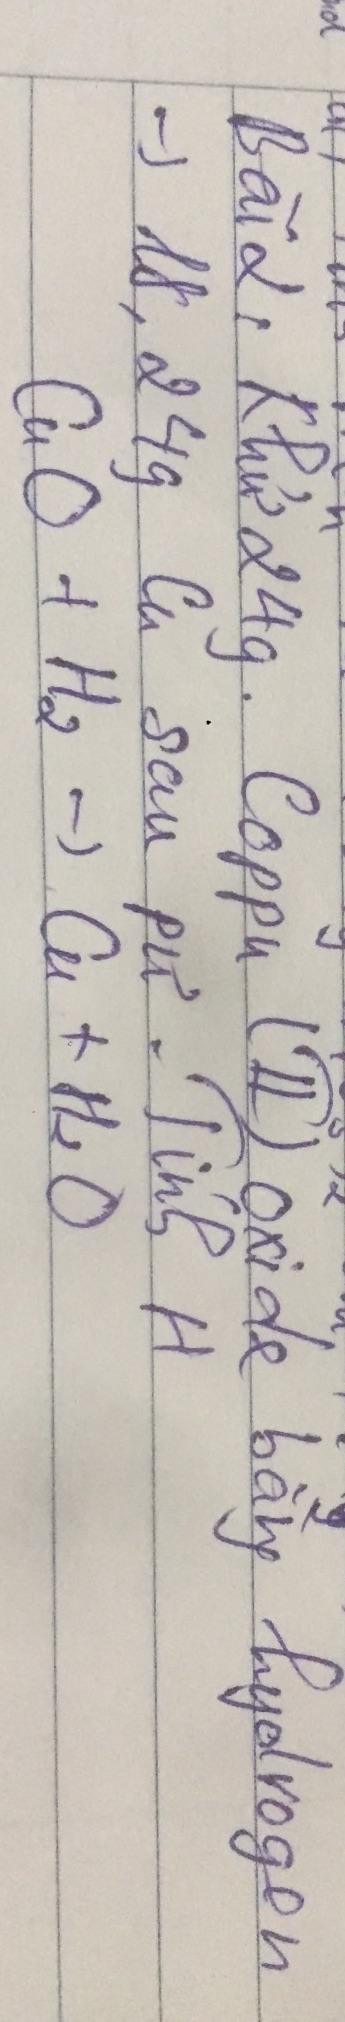 Bài 2: Khử 24g. Coppu (II) oxide bằng hydrogen
→ 18,24g Cu sau pứ. Tính H
CuO + H₂ → Cu + H₂O